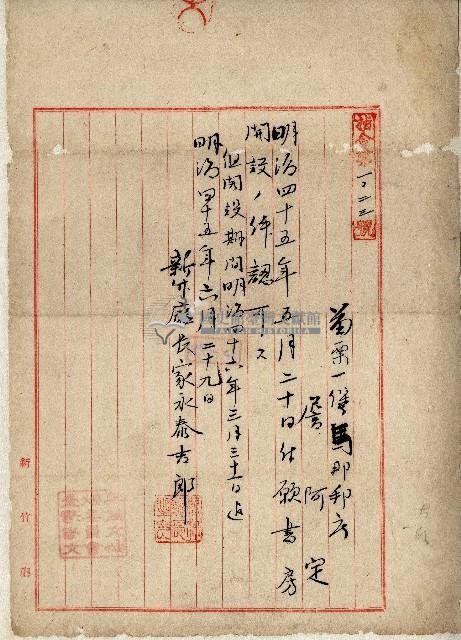 指令第一〇二三號
苗栗一堡馬那邦庄
詹阿定
明治四十五年五月二十日付願書房
開設ノ件認可ス
但開設期間明治四十六年三月三十一日迄
明治四十五年六月二十九日
新竹廳長家永泰吉郎
新竹廳